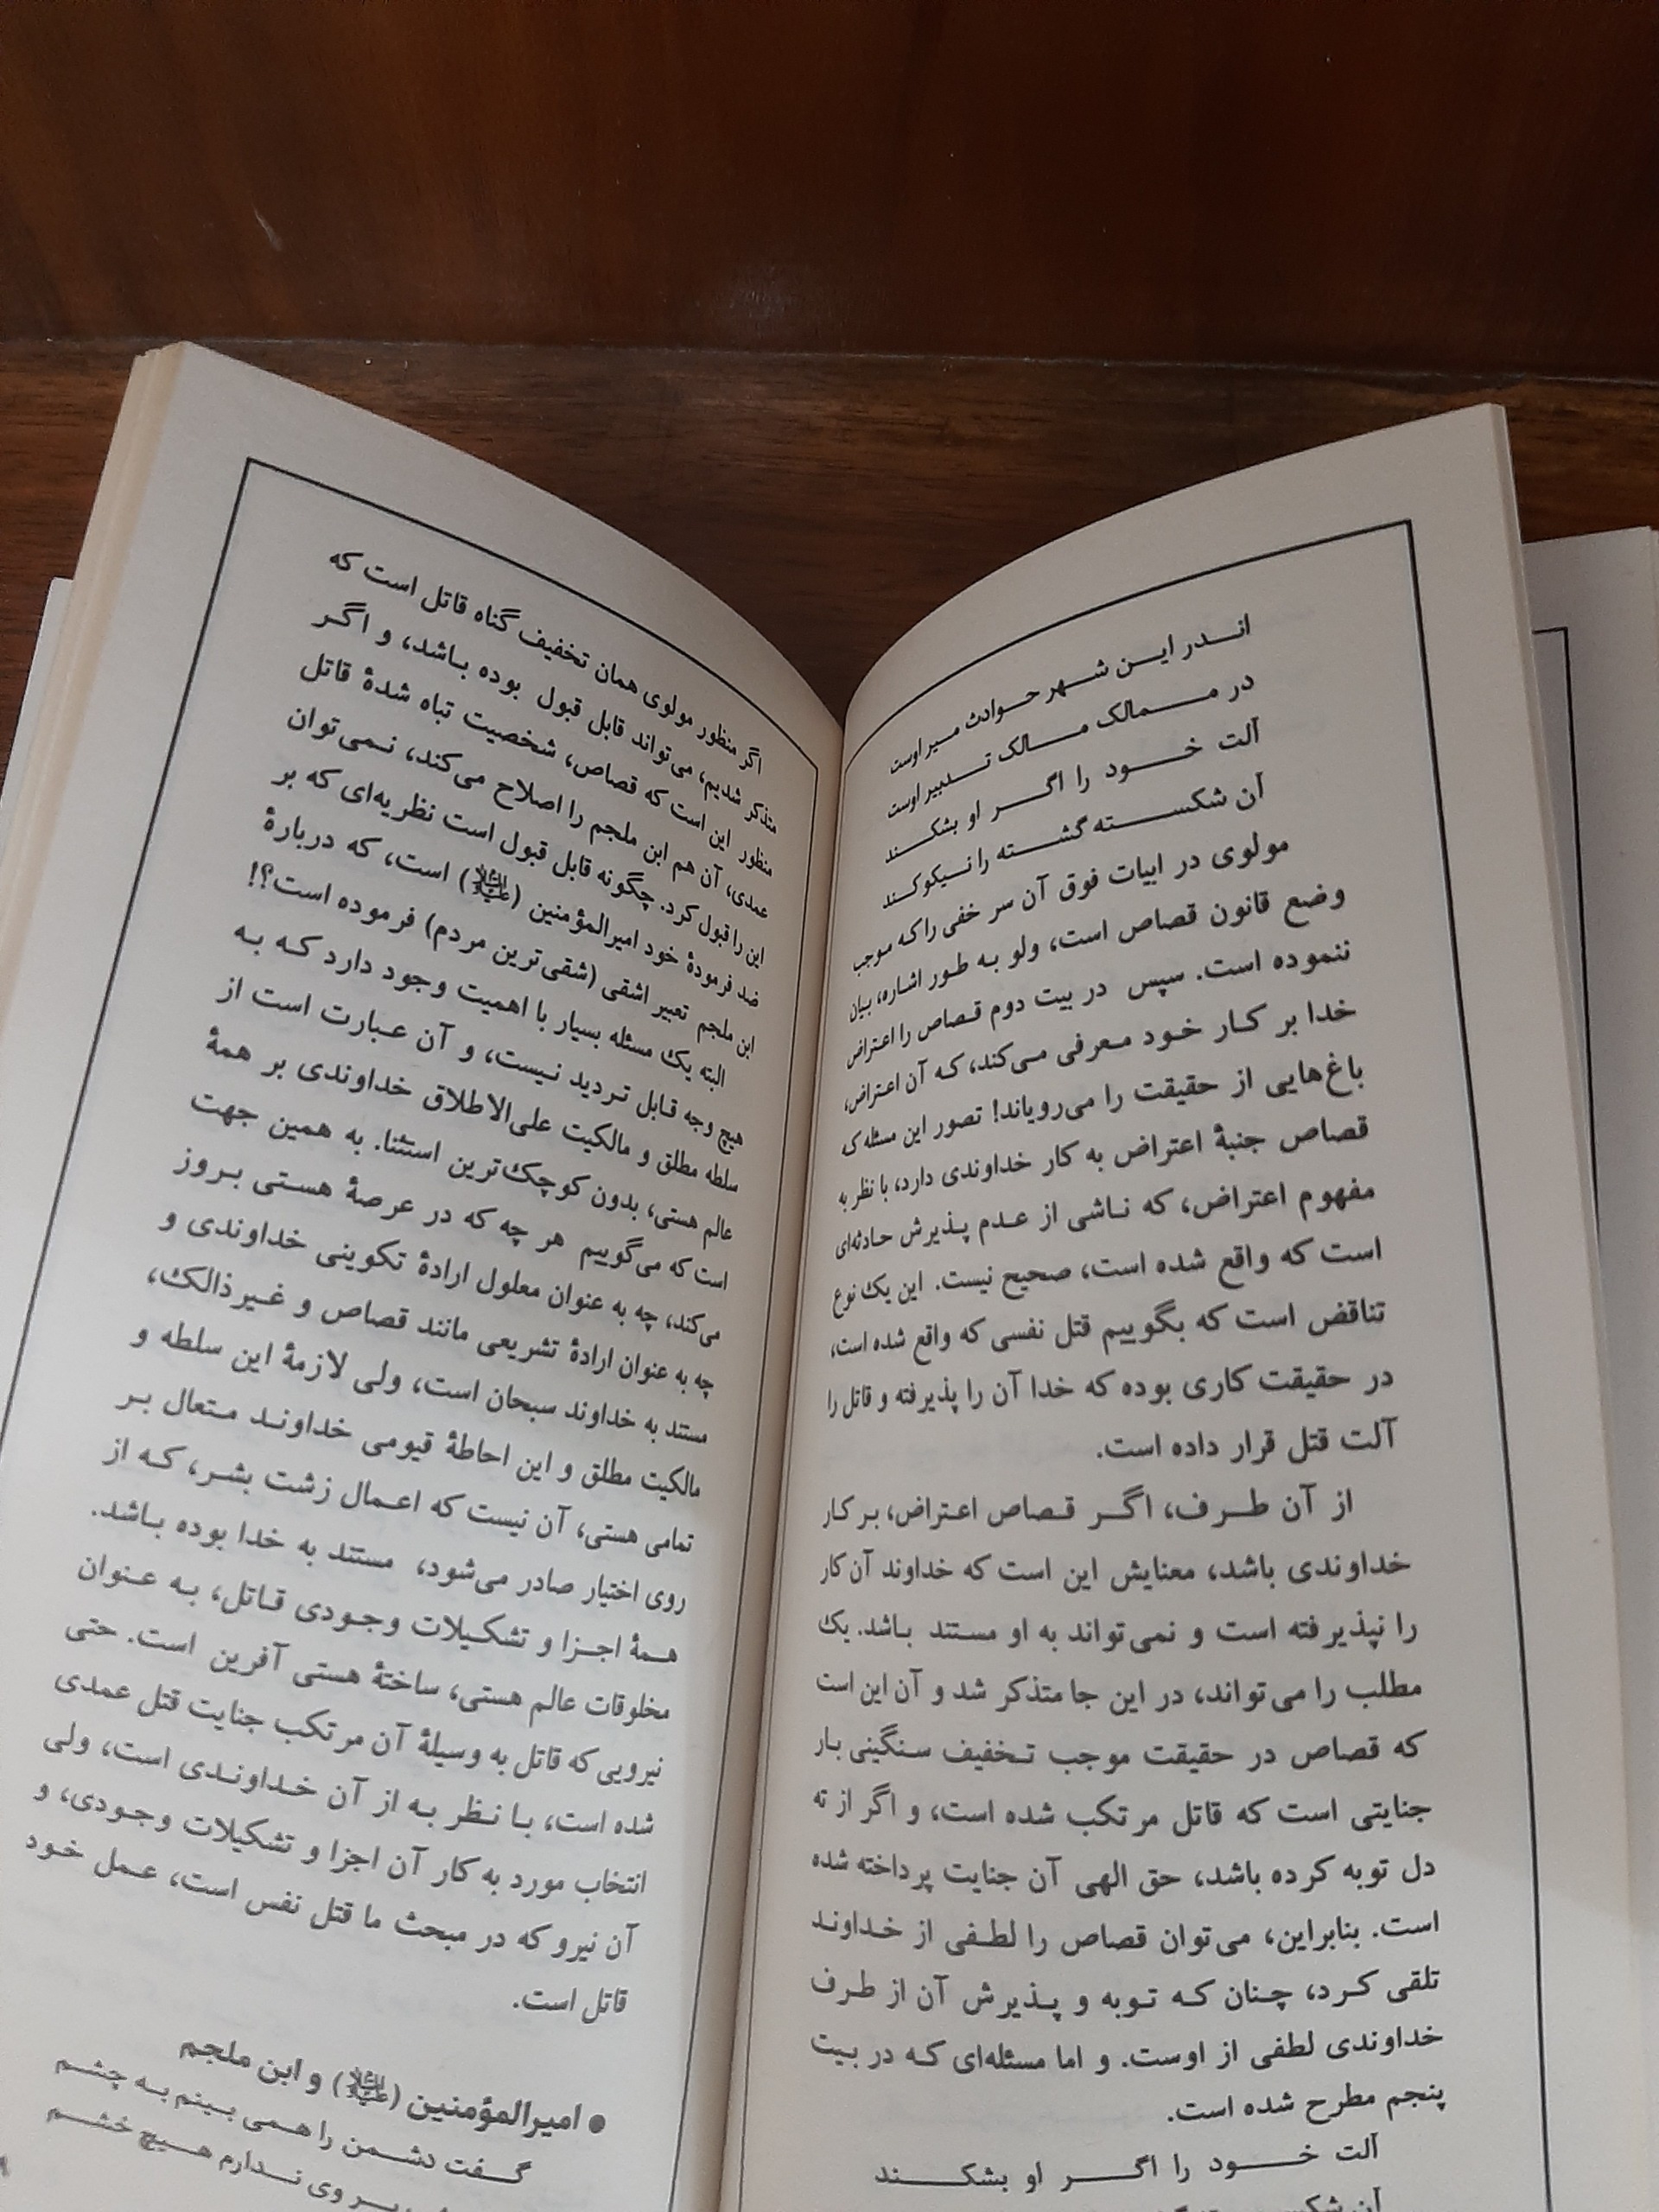 انــدر ایــن شــهر حــوادث میر اوست
در مــمالک مــالک تــدبیر اوست
آلت خــود را اگــر او بشکــند
آن شکســته گشــته را نــیکو کــند
مولوی در ابیات فوق آن سر خفی را که موجب
وضع قانون قصاص است، ولو به طور اشاره، بیان
ننموده است. سپس در بیت دوم قصاص را اعتراض
خدا بر کار خود معرفی می‌کند، که آن اعتراض،
باغ‌هایی از حقیقت را می‌رویاند! تصور این مسئله که
قصاص جنبهٔ اعتراض به کار خداوندی دارد، با نظر به
مفهوم اعتراض، که ناشی از عدم پذیرش حادثه‌ای
است که واقع شده است، صحیح نیست. این یک نوع
تناقض است که بگوییم قتل نفسی که واقع شده است،
در حقیقت کاری بوده که خدا آن را پذیرفته و قاتل را
آلت قتل قرار داده است.
از آن طرف، اگر قصاص اعتراض، بر کار
خداوندی باشد، معنایش این است که خداوند آن کار
را نپذیرفته است و نمی‌تواند به او مستند باشد. یک
مطلب را می‌تواند، در این جا متذکر شد و آن این است
که قصاص در حقیقت موجب تخفیف سنگینی بار
جنایتی است که قاتل مرتکب شده است، و اگر از ته
دل توبه کرده باشد، حق الهی آن جنایت پرداخته شده
است. بنابراین، می‌توان قصاص را لطفی از خداوند
تلقی کرد، چنان که توبه و پذیرش آن از طرف
خداوندی لطفی از اوست. و اما مسئله‌ای که در بیت
پنجم مطرح شده است.
آلت خــود را اگــر او بشکــند
آن
اگر منظور مولوی همان تخفیف گناه قاتل است که
متذکر شدیم، می‌تواند قابل قبول بوده باشد، و اگر
منظور این است که قصاص، شخصیت تباه شدهٔ قاتل
عمدی، آن هم ابن ملجم را اصلاح می‌کند، نمی‌توان
این را قبول کرد. چگونه قابل قبول است نظریه‌ای که بر
ضد فرمودهٔ خود امیرالمؤمنین (علیه السلام) است، که دربارهٔ
ابن ملجم تعبیر اشقی (شقی‌ترین مردم) فرموده است؟!
البته یک مسئله بسیار با اهمیت وجود دارد که به
هیچ وجه قابل تردید نیست، و آن عبارت است از
سلطه مطلق و مالکیت علی‌الاطلاق خداوندی بر همهٔ
عالم هستی، بدون کوچک‌ترین استثنا. به همین جهت
است که می‌گوییم هر چه که در عرصهٔ هستی بروز
می‌کند، چه به عنوان معلول ارادهٔ تکوینی خداوندی و
چه به عنوان ارادهٔ تشریعی مانند قصاص و غیرذالک،
مستند به خداوند سبحان است، ولی لازمهٔ این سلطه و
مالکیت مطلق و این احاطهٔ قیومی خداوند متعال بر
تمامی هستی، آن نیست که اعمال زشت بشر، که از
روی اختیار صادر می‌شود، مستند به خدا بوده باشد.
همهٔ اجزا و تشکیلات وجودی قاتل، به عنوان
مخلوقات عالم هستی، ساختهٔ هستی آفرین است. حتی
نیرویی که قاتل به وسیلهٔ آن مرتکب جنایت قتل عمدی
شده است، با نظر به از آن خداوندی است، ولی
انتخاب مورد به کار آن اجزا و تشکیلات وجودی، و
آن نیرو که در مبحث ما قتل نفس است، عمل خود
قاتل است.
● امیرالمؤمنین (علیه السلام) و ابن ملجم
گــفت دشــمن را هــمی بــینم بــه چشــم
بــر وی نــدارم هــیچ خشــم